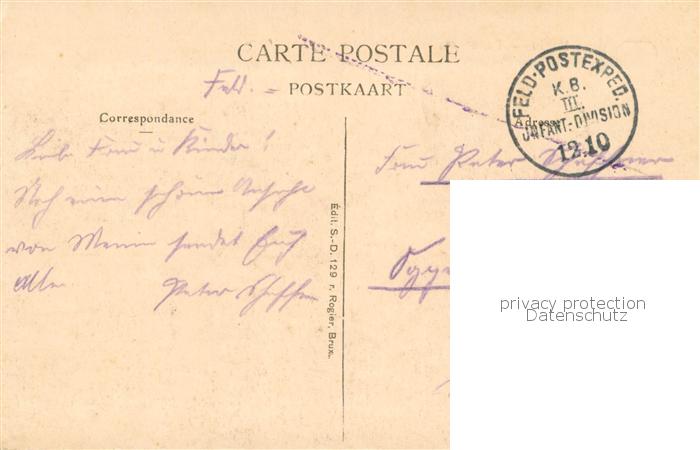 CARTE POSTALE
Feld. - POSTKAART
FELD-POSTEXPED.
K.B.
III.
INFANT.-DIVISION
12.10
Correspondance
Adresse
Liebe Frau u Kinder!
Noch eine schöne Ansicht
von Menin sendet Euch
Allen Peter
Frau Peter
Édit. S.-D. 129 r. Rogier, Brux.
privacy protection
Datenschutz